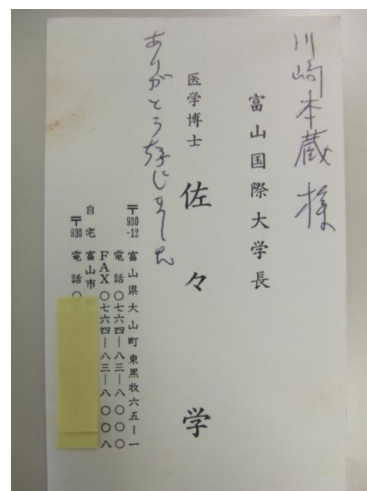 川崎本蔵様
富山国際大学長
医学博士 佐々 学
ありがとう存じました
〒930-12 富山県大山町東黒牧六五ー一
電話〇七六四ー八三ー八〇〇〇
FAX〇七六四ー八三ー八〇〇八
自宅 富山市
〒930 電話〇